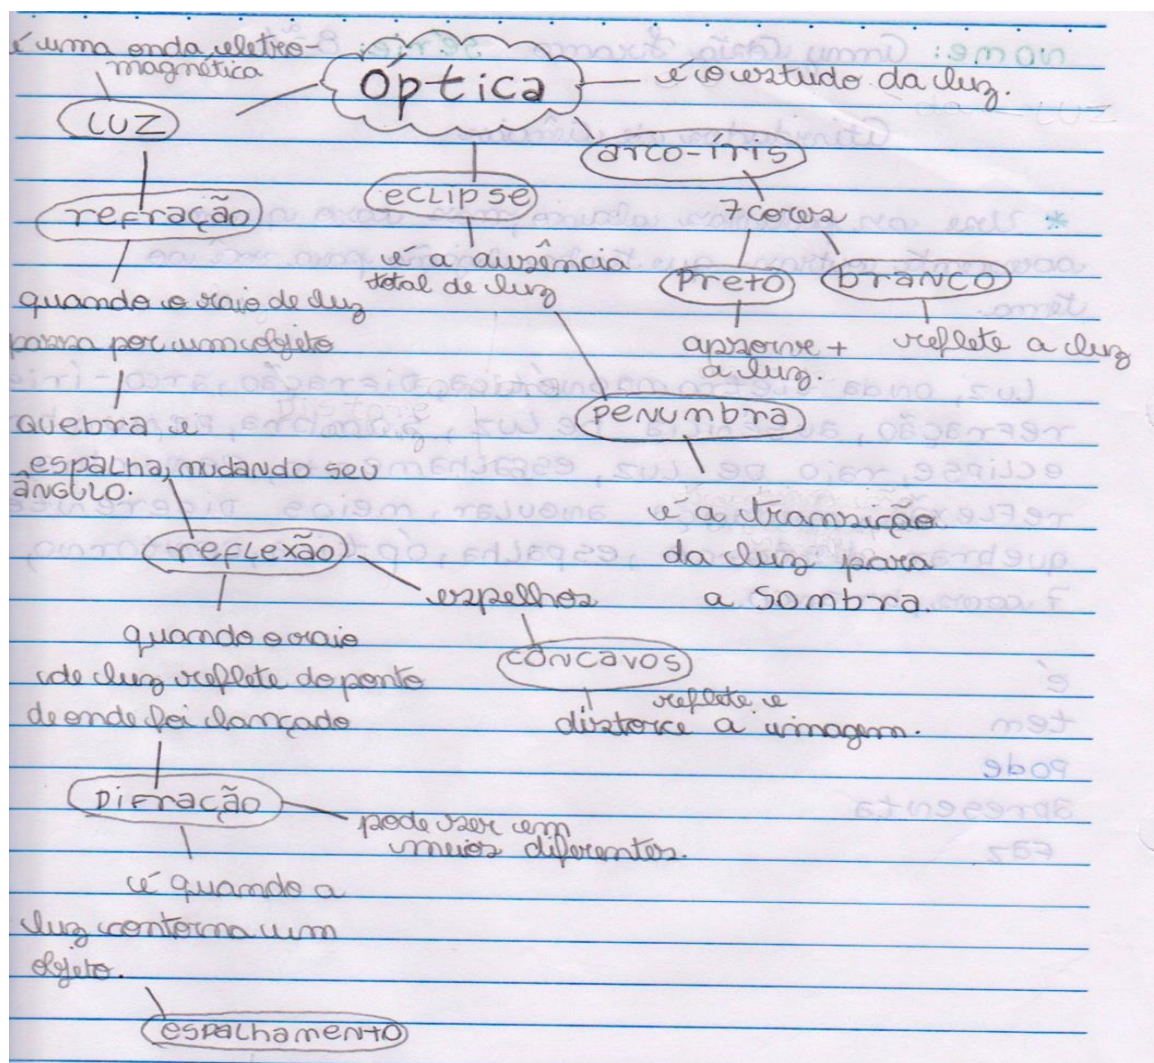 é uma onda eletro-
magnética
Óptica
é o estudo da luz.
LUZ
arco-íris
eclipse
refração
7 cores
é a ausência
total de luz
Preto
branco
quando o raio de luz
passa por um objeto
apsorve +
a luz.
reflete a luz
Penumbra
quebra e
espalha, mudando seu
ângulo.
é a transição
da luz para
a sombra.
reflexão
espelhos
côncavos
quando o raio
de luz reflete do ponto
de onde foi lançado
reflete e
distorce a imagem.
Difração
pode ser em
meios diferentes.
é quando a
luz contorna um
objeto.
espalhamento